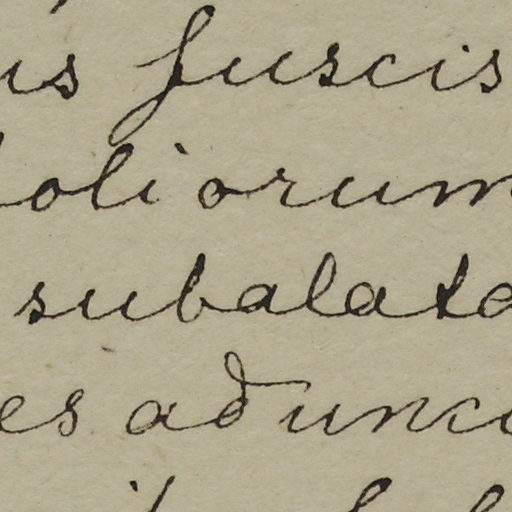 us fuscis
foliorum
subalata
es adunci